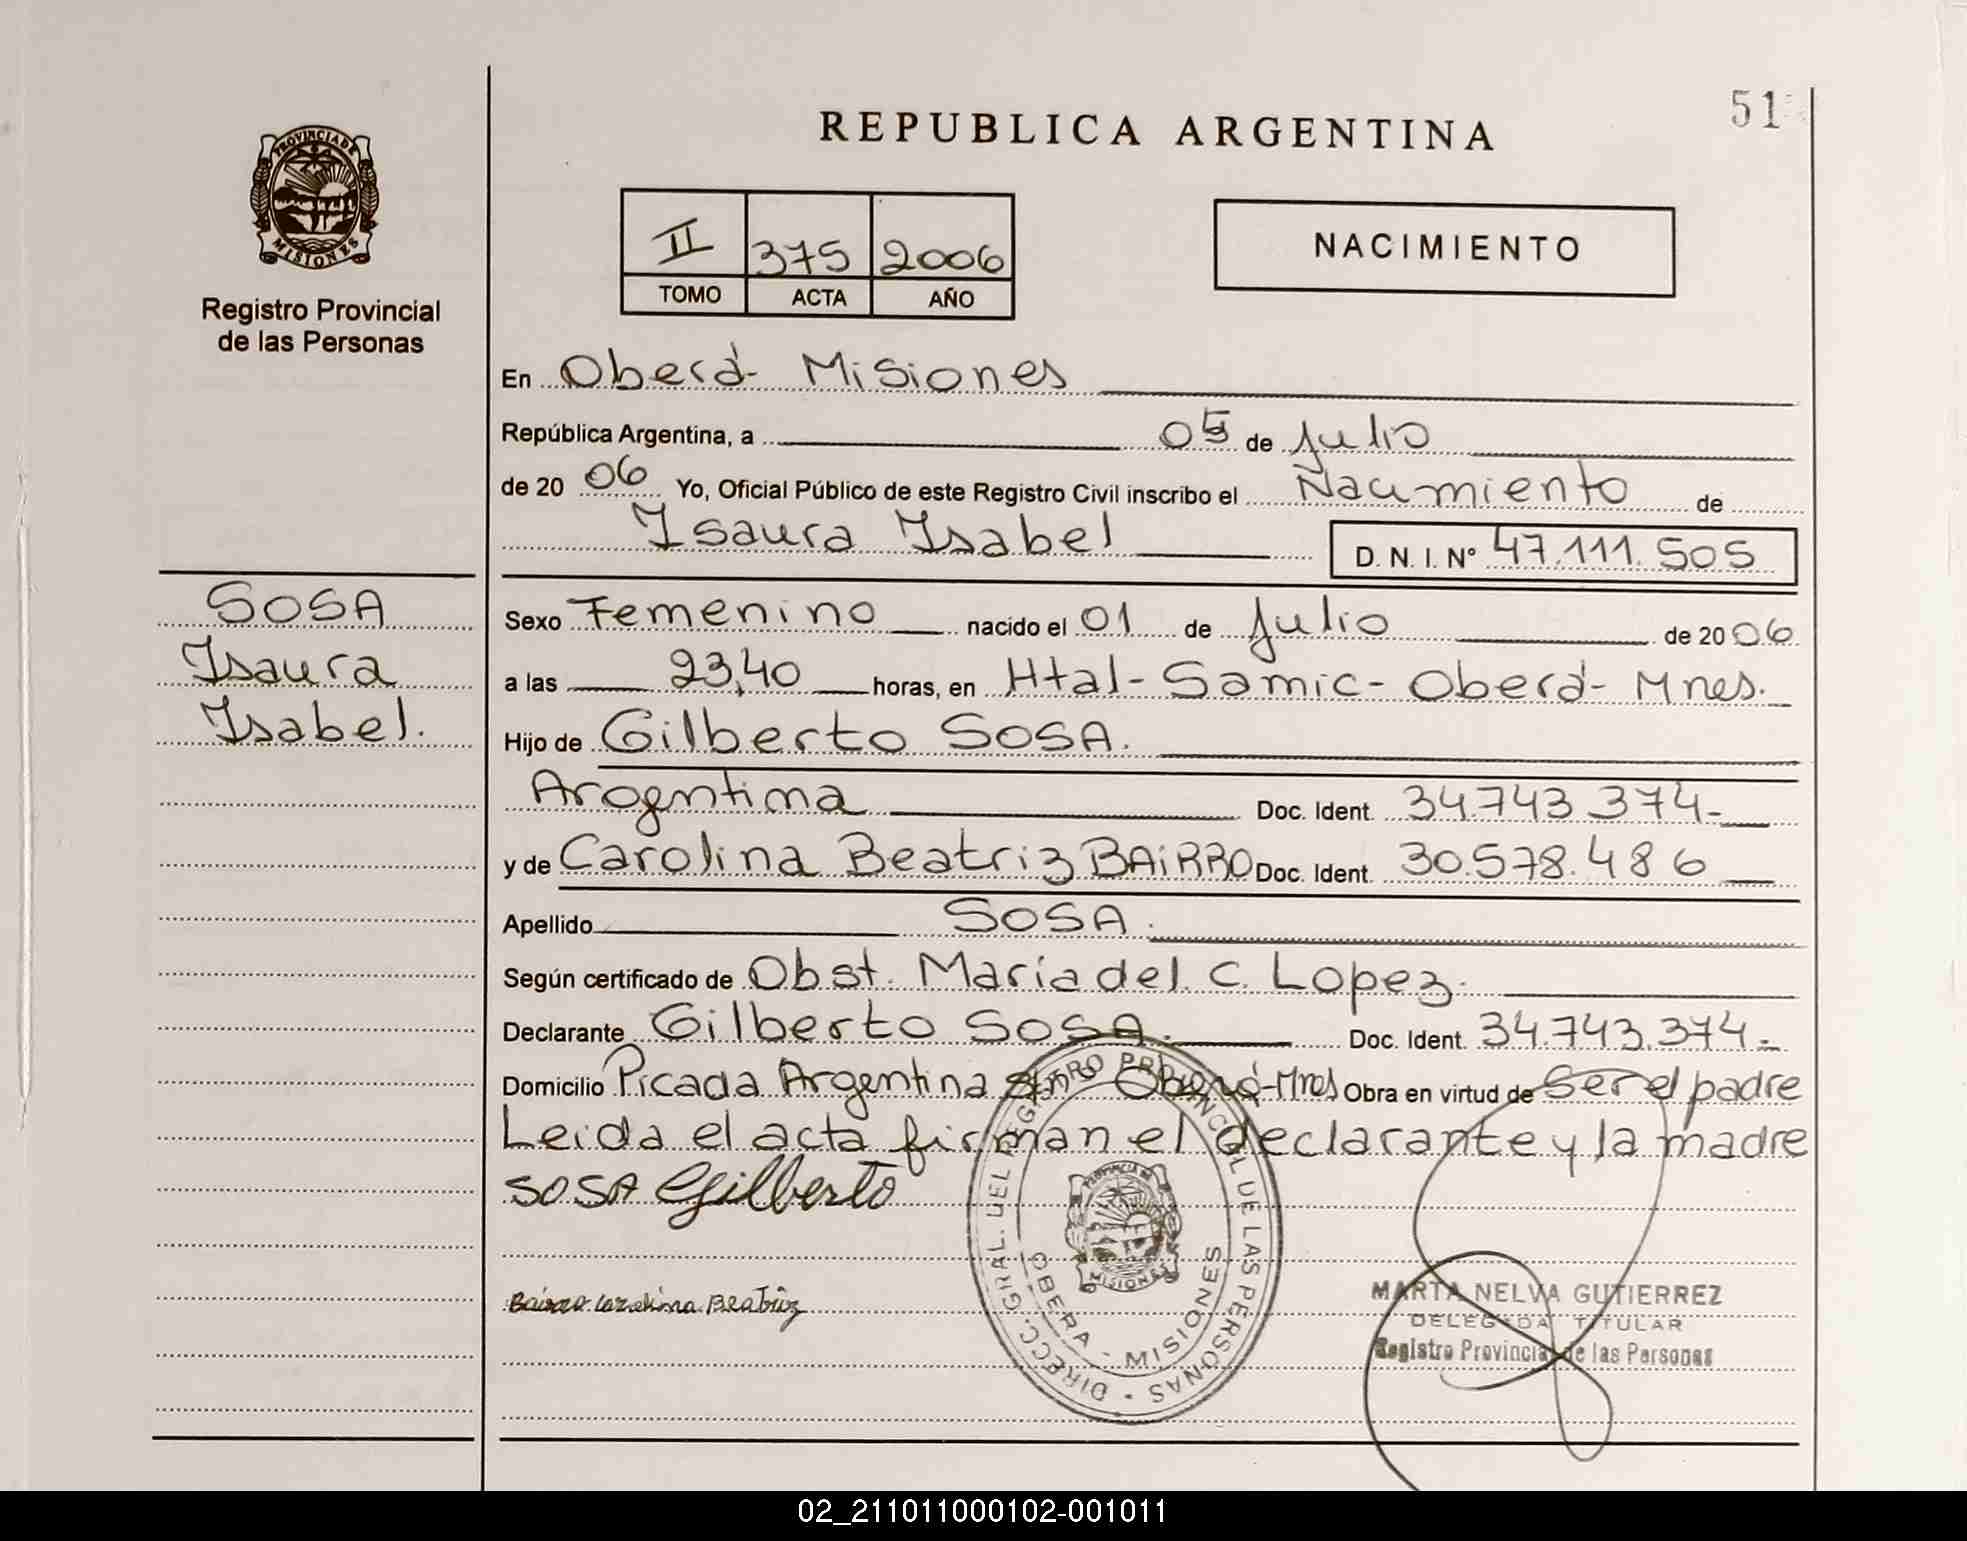 51
REPUBLICA ARGENTINA
PROVINCIA DE
MISIONES
Registro Provincial
de las Personas
II 375 2006
TOMO ACTA AÑO
NACIMIENTO
En Oberá- Misiones
República Argentina, a 05 de Julio
de 20 06 Yo, Oficial Público de este Registro Civil inscribo el Nacimiento de
Isaura Isabel D. N. I. N° 47.111.505
SOSA
Isaura
Isabel.
Sexo Femenino nacido el 01 de Julio de 20 06
a las 23,40 horas, en Htal- Samic- Oberá- Mnes.
Hijo de Gilberto SOSA.
Argentina Doc. Ident. 34.743.374-
y de Carolina Beatriz BAiRRO Doc. Ident. 30.578.486
Apellido SOSA.
Según certificado de Obst. María del C. Lopez.
Declarante Gilberto SOSA. Doc. Ident. 34.743.374.-
Domicilio Picada Argentina Oberá-Mnes Obra en virtud de Ser el padre
Leida el acta firman el declarante y la madre
SOSA Gilberto
Bairro Carolina Beatriz
DIRECC. GRAL. DEL REGISTRO PROVINCIAL DE LAS PERSONAS
PROVINCIA DE
MISIONES
OBERA - MISIONES
MARTA NELVA GUTIERREZ
DELEGADA TITULAR
Registro Provincial de las Personas
02_211011000102-001011